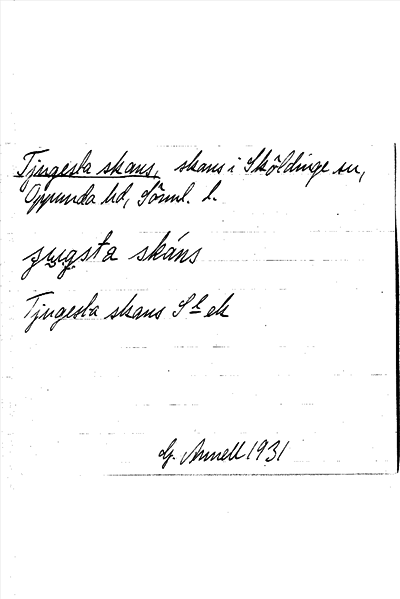 Tjugesta skans, skans i Sköldinge sn,
Oppunda hd, Söml. l.
skáns
Tjugesta skans ek
G. Annell 1931